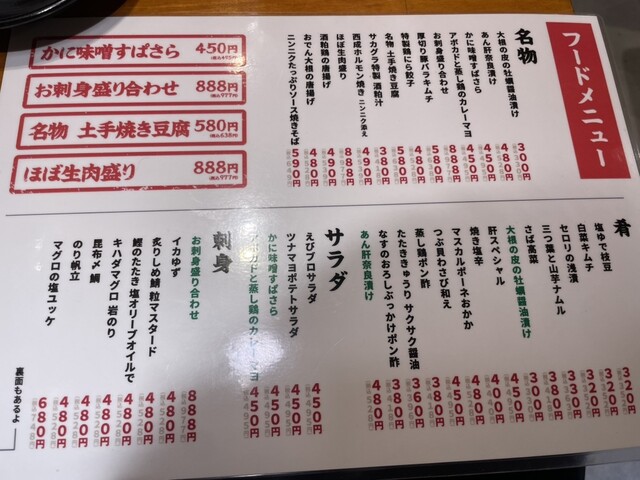 フードメニュー
かに味噌すばさら 450円
お刺身盛り合わせ 888円(税込977円)
名物 土手焼き豆腐 580円(税込638円)
ほぼ生肉盛り 888円(税込977円)
名物
大根の皮の牡蠣醤油漬け 300円
あん肝奈良漬け 480円
かに味噌すばさら 450円
アボカドと蒸し鶏のカレーマヨ 450円
お刺身盛り合わせ 888円
厚切り豚バラキムチ 580円
特製鶏にら餃子 480円
名物 土手焼き豆腐 580円
サカグラ特製 酒粕汁 380円
西成ホルモン焼き ニンニク添え 490円
ほぼ生肉盛り 888円
酒粕鶏の唐揚げ 490円
おでん大根の唐揚げ 480円
ニンニクたっぷりソース焼きそば 590円
肴
塩ゆで枝豆 320円
白菜キムチ 320円
セロリの浅漬 320円
三つ葉と山芋ナムル 350円
さば高菜 350円
大根の皮の牡蠣醤油漬け 300円
肝スペシャル 450円
焼き塩辛 400円
マスカルポーネおかか 400円
つぶ貝わさび和え 380円
蒸し鶏ポン酢 390円
たたききゅうり サクサク醤油 360円
なすのおろしぶっかけポン酢 380円
あん肝奈良漬け 480円
サラダ
えびブロサラダ 450円
ツナマヨポテトサラダ 450円
かに味噌すばさら 450円
アボカドと蒸し鶏のカレーマヨ 450円
刺身
お刺身盛り合わせ 888円
イカゆず 480円
炙りしめ鯖 粒マスタード 480円
鰹のたたき 塩オリーブオイルで 480円
キハダマグロ 岩のり 480円
昆布〆鯛 480円
のり帆立 480円
マグロの塩ユッケ 680円
裏面もあるよ